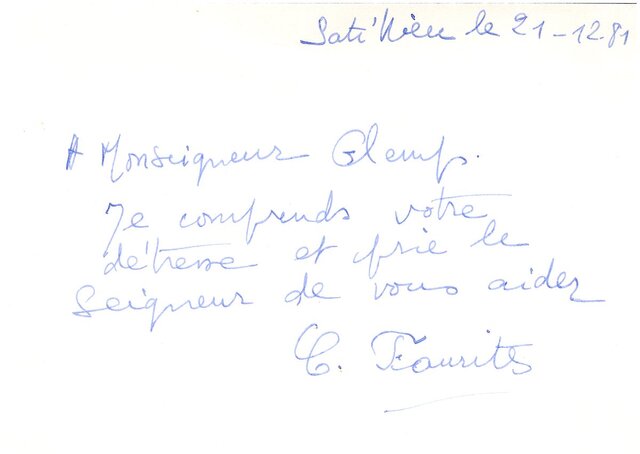 le 21-12.81
A Monseigneur Glemp.
Je comprends votre
détresse et prie le
Seigneur de vous aider
C.